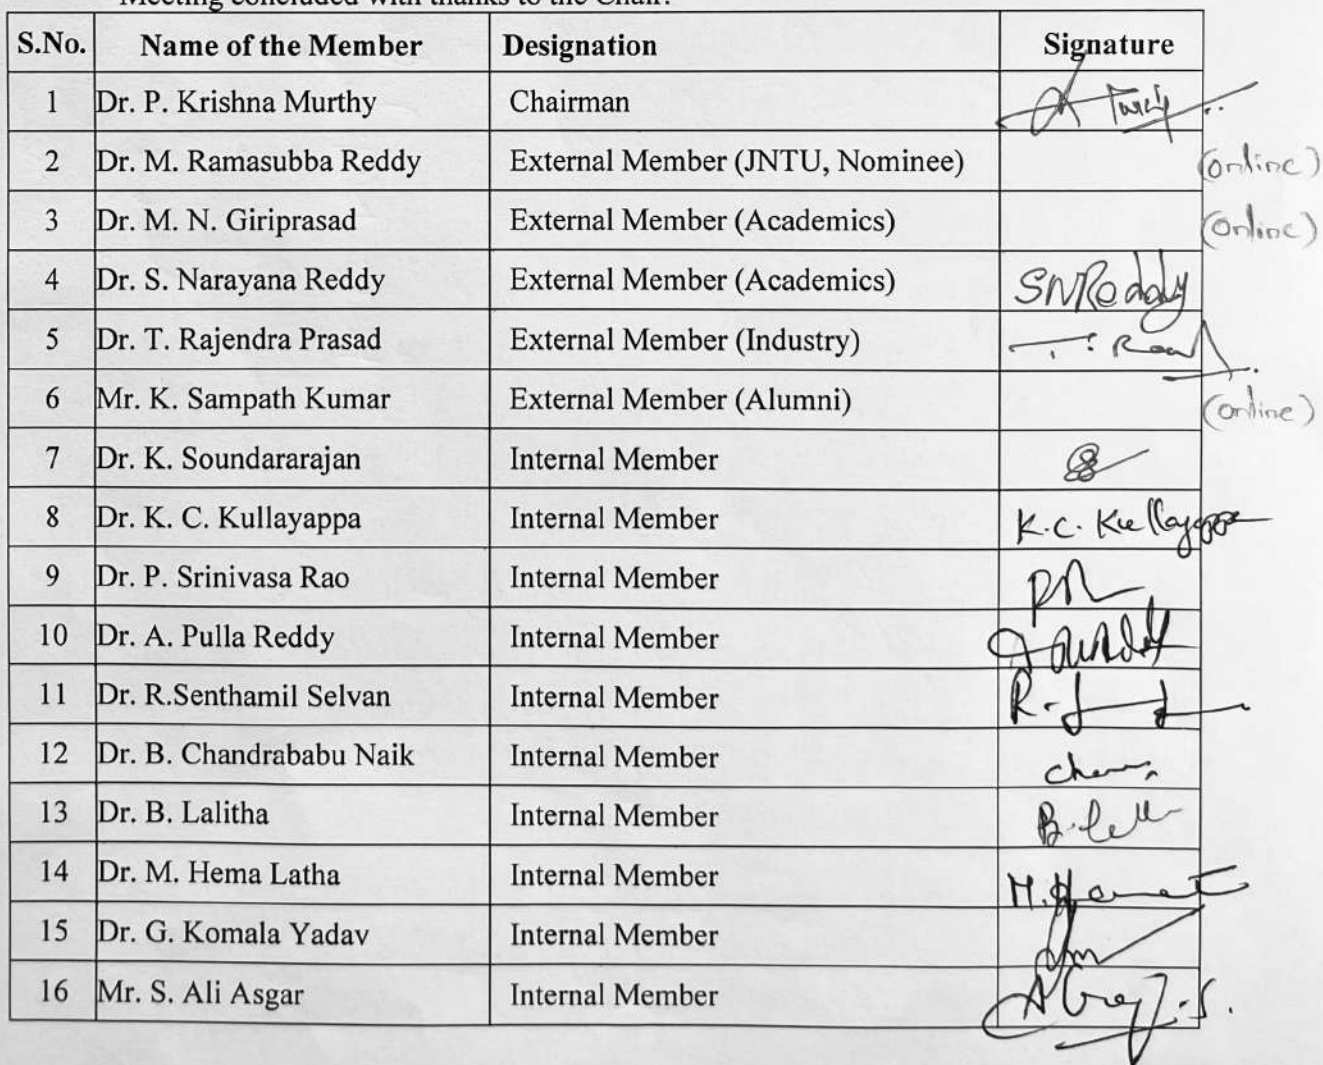 Meeting concluded with thanks to the Chair.
S.No. Name of the Member Designation Signature
1 Dr. P. Krishna Murthy Chairman
2 Dr. M. Ramasubba Reddy External Member (JNTU, Nominee) (online)
3 Dr. M. N. Giriprasad External Member (Academics) (online)
4 Dr. S. Narayana Reddy External Member (Academics) SNReddy
5 Dr. T. Rajendra Prasad External Member (Industry)
6 Mr. K. Sampath Kumar External Member (Alumni) (online)
7 Dr. K. Soundararajan Internal Member
8 Dr. K. C. Kullayappa Internal Member K.C. Kullayappa
9 Dr. P. Srinivasa Rao Internal Member
10 Dr. A. Pulla Reddy Internal Member
11 Dr. R.Senthamil Selvan Internal Member
12 Dr. B. Chandrababu Naik Internal Member
13 Dr. B. Lalitha Internal Member
14 Dr. M. Hema Latha Internal Member
15 Dr. G. Komala Yadav Internal Member
16 Mr. S. Ali Asgar Internal Member